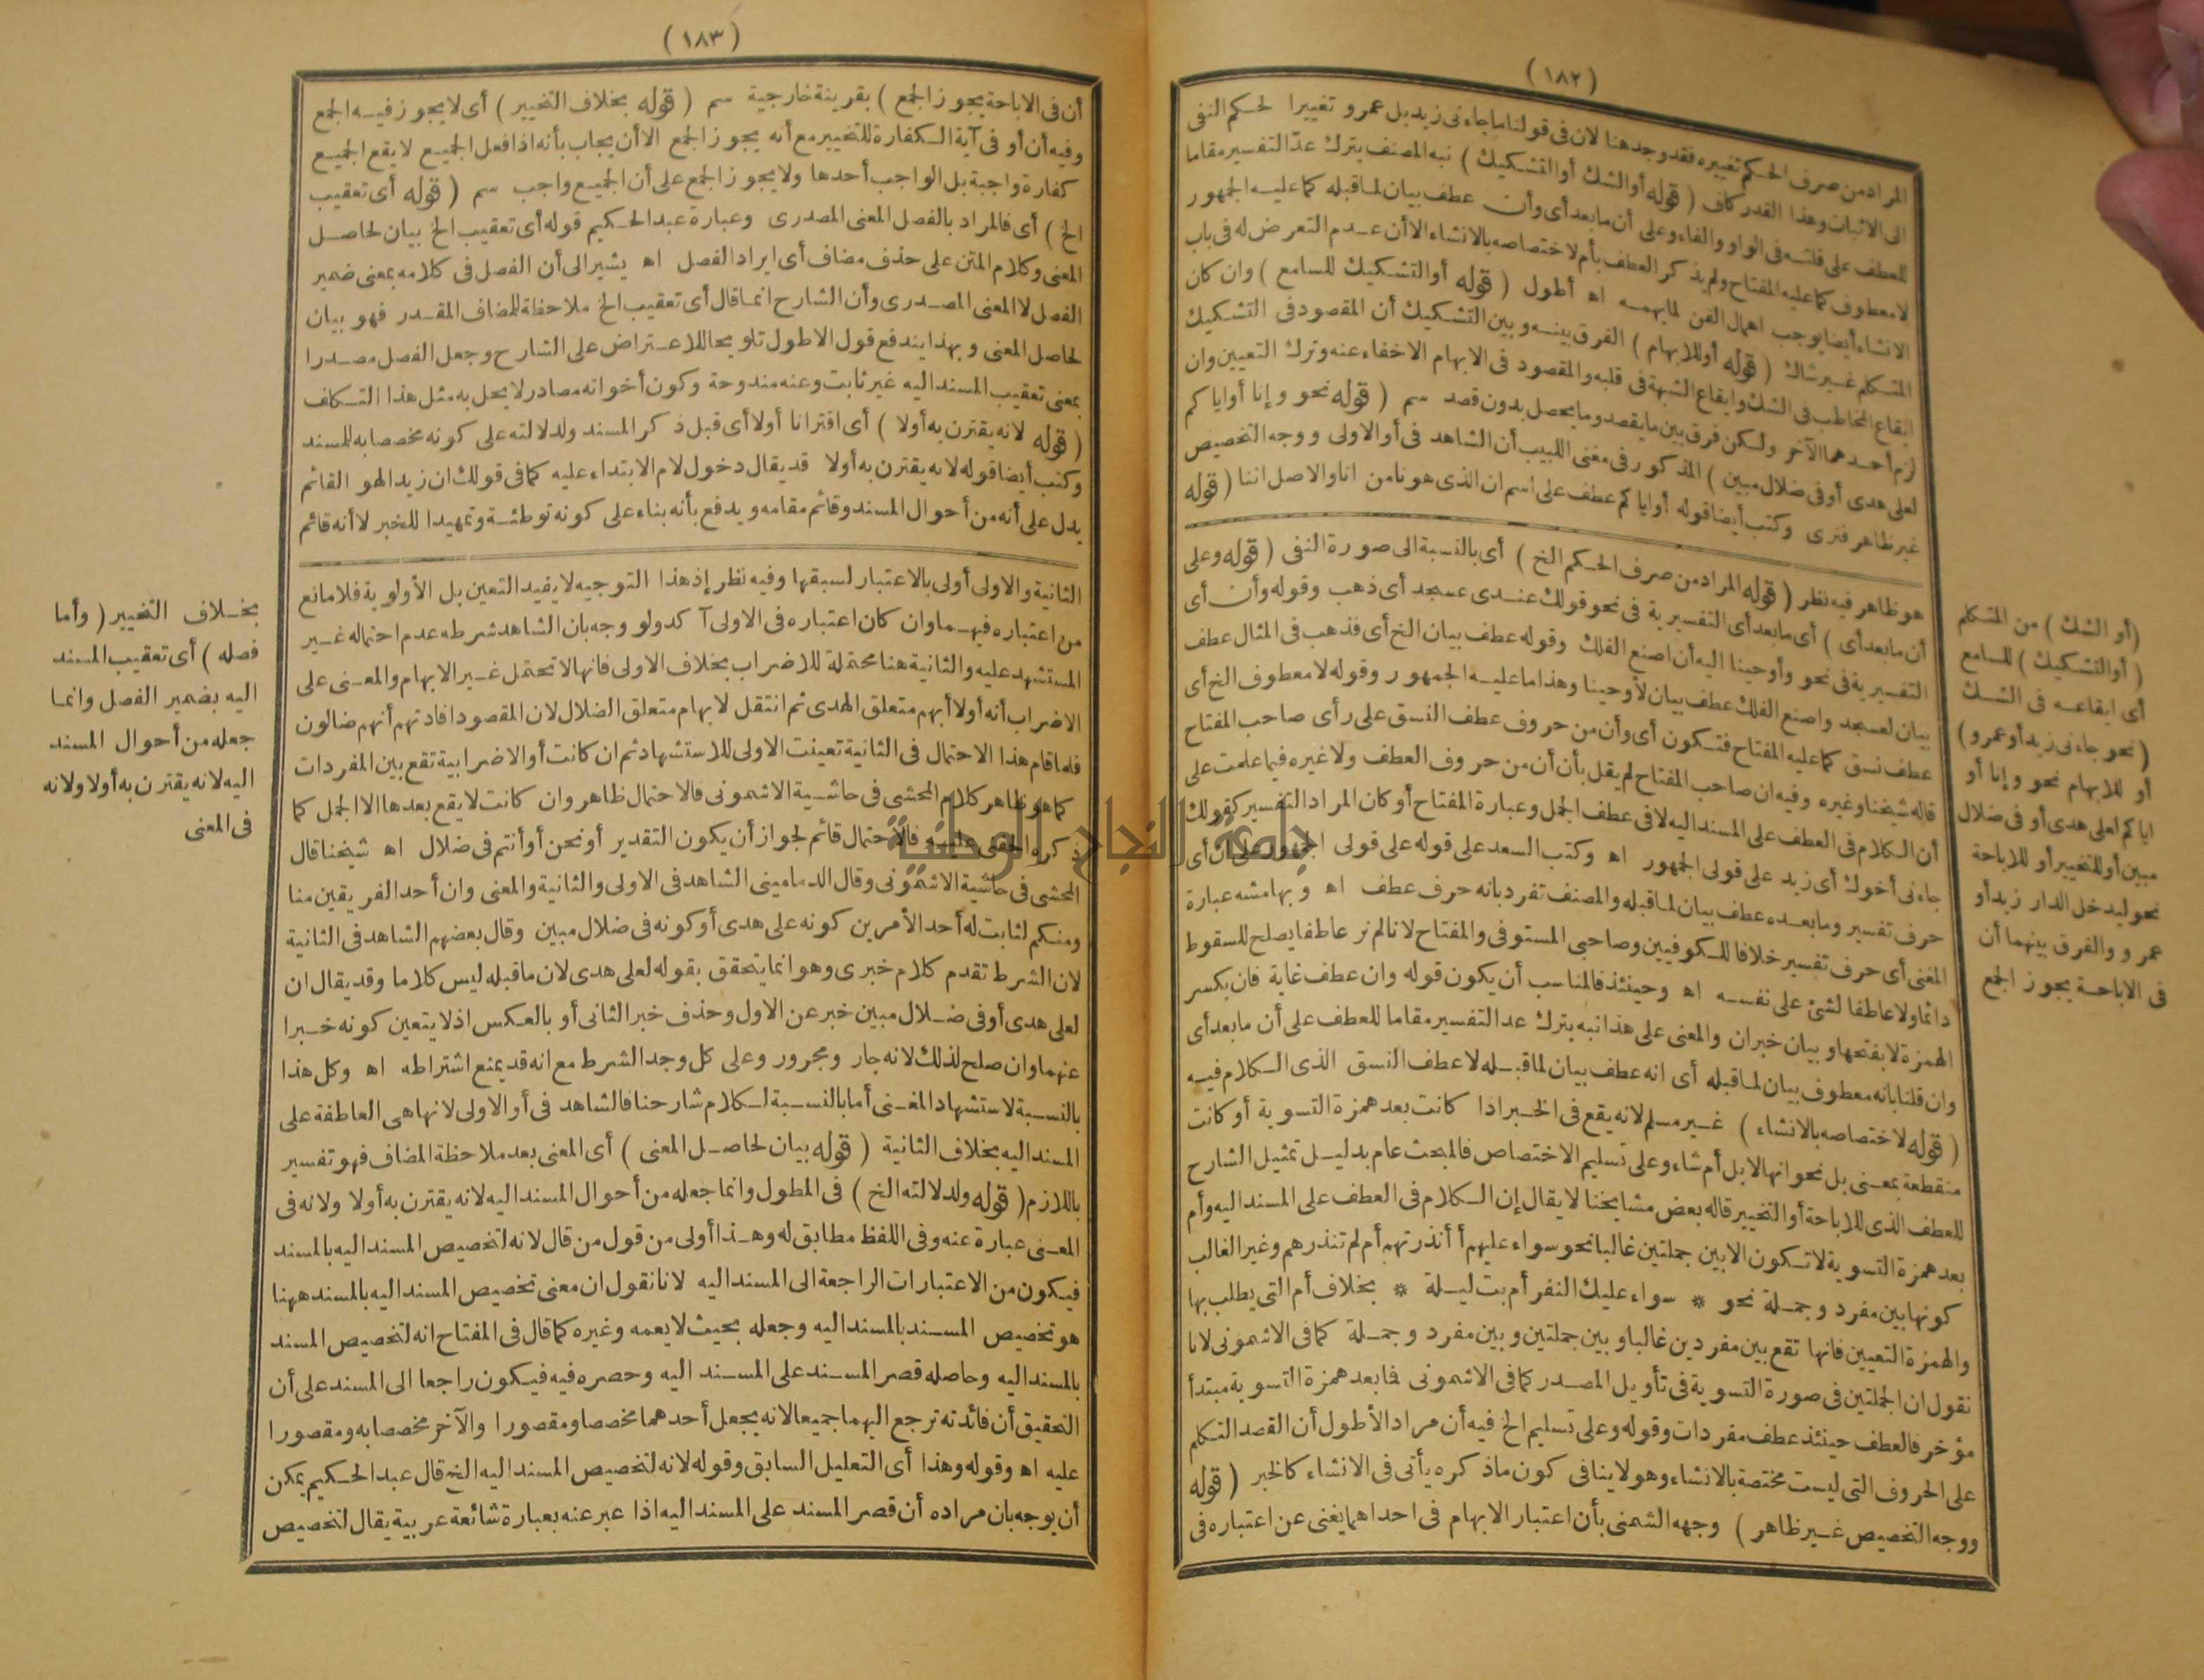 (١٨٢)
المراد من صرف الحكم تغييره فقد وجد هنا لان فى قولنا ما جاءنى زيد بل عمرو تغييرا لحكم النفى
الى الاثبات وهذا القدر كاف (قوله أو الشك أو التشكيك) نبه المصنف بترك عدّ التفسير مقاما
للعطف على قلته فى الواو والفاء وعلى أن ما بعد أى وأن عطف بيان لما قبله كما عليه الجمهور
لا معطوف كما عليه المفتاح ولم يذكر العطف بأم لاختصاصه بالانشاء الا أن عدم التعرض له فى باب
الانشاء أيضا يوجب اهمال الفن لما يهمه اه أطول (قوله أو التشكيك للسامع) وان كان
المتكلم غير شاك (قوله أو للابهام) الفرق بينه وبين التشكيك أن المقصود فى التشكيك
ايقاع المخاطب فى الشك وايقاع الشبهة فى قلبه والمقصود فى الابهام الاخفاء عنه وترك التعيين وان
لزم أحدهما الآخر ولكن فرق بين ما يقصد وما يحصل بدون قصد سم (قوله نحو وإنا أو اياكم
لعلى هدى أو فى ضلال مبين) المذكور فى مغنى اللبيب أن الشاهد فى أو الاولى ووجه التخصيص
غير ظاهر فنرى وكتب أيضا قوله أو اياكم عطف على اسم ان الذى هو نا من انا والاصل اننا (قوله
هو ظاهر فيه نظر (قوله المراد من صرف الحكم الخ) أى بالنسبة الى صورة النفى (قوله وعلى
أن ما بعد أى) أى ما بعد أى التفسيرية فى نحو قولك عندى عسجد أى ذهب وقوله وأن أى
التفسيرية فى نحو وأوحينا اليه أن اصنع الفلك وقوله عطف بيان الخ أى فذهب فى المثال عطف
بيان لعسجد واصنع الفلك عطف بيان لأوحينا وهذا ما عليه الجمهور وقوله لا معطوف الخ أى
عطف نسق كما عليه المفتاح فتكون أى وأن من حروف عطف النسق على رأى صاحب المفتاح
قاله شيخنا وغيره وفيه ان صاحب المفتاح لم يقل بأن أن من حروف العطف ولا غيره فيما علمت على
أن الكلام فى العطف على المسند اليه لا فى عطف الجمل وعبارة المفتاح أو كان المراد التفسير كقولك
جاءنى أخوك أى زيد على قولى الجمهور اه وكتب السعد على قوله على قولى الجمهور على أن أى
حرف تفسير وما بعده عطف بيان لما قبله والمصنف تفرد بانه حرف عطف اه وبهامشه عبارة
المغنى أى حرف تفسير خلافا للكوفيين وصاحبى المستوفى والمفتاح لانا لم نر عاطفا يصلح للسقوط
دائما ولا عاطفا لشئ على نفسه اه وحينئذ فالمناسب أن يكون قوله وان عطف غاية فان بكسر
الهمزة لا بفتحها وبيان خبران والمعنى على هذا نبه بترك عد التفسير مقاما للعطف على أن ما بعد أى
وان قلنا بانه معطوف بيان لما قبله أى انه عطف بيان لما قبله لا عطف النسق الذى الكلام فيه
(قوله لاختصاصه بالانشاء) غير مسلم لانه يقع فى الخبر اذا كانت بعد همزة التسوية أو كانت
منقطعة بمعنى بل نحو انها لابل أم شاء وعلى تسليم الاختصاص فالمبحث عام بدليل تمثيل الشارح
للعطف الذى للاباحة أو التخيير قاله بعض مشايخنا لا يقال إن الكلام فى العطف على المسند اليه وأم
بعد همزة التسوية لا تكون الا بين جملتين غالبا نحو سواء عليهم أأنذرتهم أم لم تنذرهم وغير الغالب
كونها بين مفرد وجملة نحو * سواء عليك النفر أم بت ليلة * بخلاف أم التى يطلب بها
والهمزة التعيين فانها تقع بين مفردين غالبا وبين جملتين وبين مفرد وجملة كما فى الاشمونى لانا
نقول ان الجملتين فى صورة التسوية فى تأويل المصدر كما فى الاشمونى فما بعد همزة التسوية مبتدأ
مؤخر فالعطف حينئذ عطف مفردات وقوله وعلى تسليم الخ فيه أن مراد الأطول أن القصد التكلم
على الحروف التى ليست مختصة بالانشاء وهو لا ينافى كون ما ذكره يأتى فى الانشاء كالخبر (قوله
ووجه التخصيص غير ظاهر) وجهه الشمنى بأن اعتبار الابهام فى احداهما يغنى عن اعتباره فى
(أو الشك) من المتكلم
(أو التشكيك) للسامع
أى ايقاعه فى الشك
(نحو جاءنى زيد أو عمرو)
أو للابهام نحو وإنا أو
اياكم لعلى هدى أو فى ضلال
مبين أو للتخيير أو للاباحة
نحو ليدخل الدار زيد أو
عمرو والفرق بينهما أن
فى الاباحة يجوز الجمع
(١٨٣)
أن فى الاباحة يجوز الجمع) بقرينة خارجية سم (قوله بخلاف التخيير) أى لا يجوز فيه الجمع
وفيه أن أو فى آية الكفارة للتخيير مع أنه يجوز الجمع الا أن يجاب بأنه اذا فعل الجميع لا يقع الجميع
كفارة واجبة بل الواجب أحدها ولا يجوز الجمع على أن الجميع واجب سم (قوله أى تعقيب
الخ) أى فالمراد بالفصل المعنى المصدرى وعبارة عبد الحكيم قوله أى تعقيب الخ بيان لحاصل
المعنى وكلام المتن على حذف مضاف أى ايراد الفصل اه يشير الى أن الفصل فى كلامه بمعنى ضمير
الفصل لا المعنى المصدرى وأن الشارح انما قال أى تعقيب الخ ملاحظة للمضاف المقدر فهو بيان
لحاصل المعنى وبهذا يندفع قول الاطول تلويحا للاعتراض على الشارح وجعل الفصل مصدرا
بمعنى تعقيب المسند اليه غير ثابت وعنه مندوحة وكون أخواته مصادر لا يحل به مثل هذا التكلف
(قوله لانه يقترن به أولا) أى اقترانا أولا أى قبل ذكر المسند ولدلالته على كونه مخصصا به للمسند
وكتب أيضا قوله لانه يقترن به أولا قد يقال دخول لام الابتداء عليه كما فى قولك ان زيدا لهو القائم
يدل على أنه من أحوال المسند وقائم مقامه ويدفع بأنه بناء على كونه توطئة وتمهيدا للخبر لا أنه قائم
الثانية والاولى أولى بالاعتبار لسبقها وفيه نظر إذ هذا التوجيه لا يفيد التعين بل الأولوية فلا مانع
من اعتباره فيهما وان كان اعتباره فى الاولى آكد ولو وجه بان الشاهد شرطه عدم احتماله غير
المستشهد عليه والثانية هنا محتملة للاضراب بخلاف الاولى فانها لا تحتمل غير الابهام والمعنى على
الاضراب أنه أولا أبهم متعلق الهدى ثم انتقل لابهام متعلق الضلال لان المقصود افادتهم أنهم ضالون
فلما قام هذا الاحتمال فى الثانية تعينت الاولى للاستشهاد ثم ان كانت أو الاضرابية تقع بين المفردات
كما هو ظاهر كلام المحشى فى حاشية الاشمونى فالاحتمال ظاهر وان كانت لا يقع بعدها الا الجمل كما
ذكره الحفنى عليه فالاحتمال قائم لجواز أن يكون التقدير أو نحن أو أنتم فى ضلال اه شيخنا قال
المحشى فى حاشية الاشمونى وقال الدمامينى الشاهد فى الاولى والثانية والمعنى وان أحد الفريقين منا
ومنكم لثابت له أحد الأمرين كونه على هدى أو كونه فى ضلال مبين وقال بعضهم الشاهد فى الثانية
لان الشرط تقدم كلام خبرى وهو انما يتحقق بقوله لعلى هدى لان ما قبله ليس كلاما وقد يقال ان
لعلى هدى أو فى ضلال مبين خبر عن الاول وحذف خبر الثانى أو بالعكس اذ لا يتعين كونه خبرا
عنهما وان صلح لذلك لانه جار ومجرور وعلى كل وجد الشرط مع انه قد يمنع اشتراطه اه وكل هذا
بالنسبة لاستشهاد المغنى أما بالنسبة لكلام شارحنا فالشاهد فى أو الاولى لانها هى العاطفة على
المسند اليه بخلاف الثانية (قوله بيان لحاصل المعنى) أى المعنى بعد ملاحظة المضاف فهو تفسير
باللازم (قوله ولدلالته الخ) فى المطول وانما جعله من أحوال المسند اليه لانه يقترن به أولا ولانه فى
المعنى عبارة عنه وفى اللفظ مطابق له وهذا أولى من قول من قال لانه لتخصيص المسند اليه بالمسند
فيكون من الاعتبارات الراجعة الى المسند اليه لانا نقول ان معنى تخصيص المسند اليه بالمسند ههنا
هو تخصيص المسند بالمسند اليه وجعله بحيث لا يعمه وغيره كما قال فى المفتاح انه لتخصيص المسند
بالمسند اليه وحاصله قصر المسند على المسند اليه وحصره فيه فيكون راجعا الى المسند على أن
التحقيق أن فائدته ترجع اليهما جميعا لانه يجعل أحدهما مخصصا ومقصورا والآخر مخصصا به ومقصورا
عليه اه وقوله وهذا أى التعليل السابق وقوله لانه لتخصيص المسند اليه الخ قال عبد الحكيم يمكن
أن يوجه بان مراده أن قصر المسند على المسند اليه اذا عبر عنه بعبارة شائعة عربية يقال لتخصيص
بخلاف التخيير (وأما
فصله) أى تعقيب المسند
اليه بضمير الفصل وانما
جعله من أحوال المسند
اليه لانه يقترن به أولا ولانه
فى المعنى
جامعة النجاح الوطنية